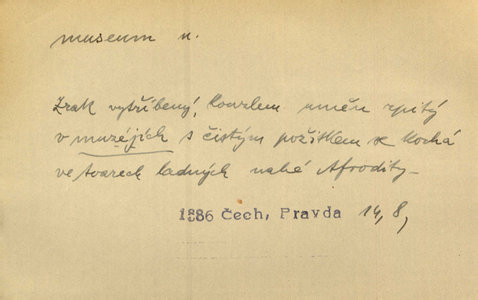 museum n.
Zrak vytříbený, kouzlem uměn zpitý
v muzéjích s čistým požitkem se kochá
ve tvarech ladných nahé Afrodity_
1886 Čech, Pravda 14, 8,